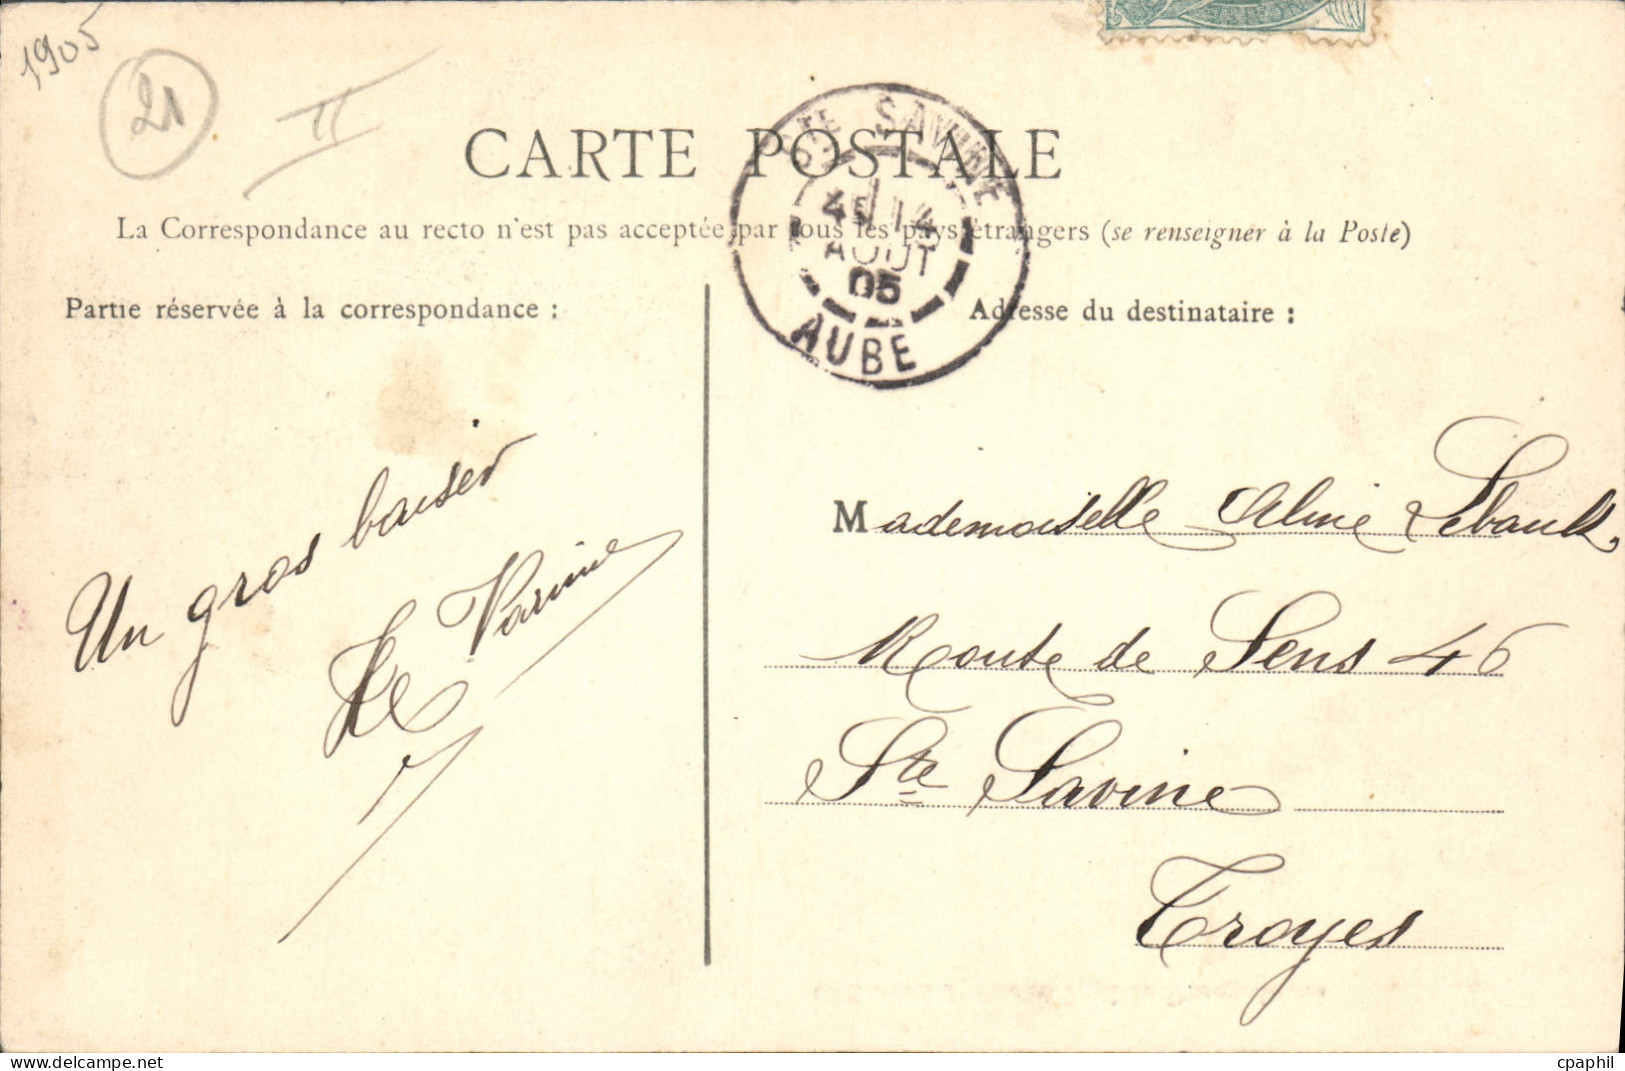 1905
21
II
CARTE POSTALE
STE SAVINE
14
AOUT
05
AUBE
La Correspondance au recto n'est pas acceptée par tous les pays étrangers (se renseigner à la Poste)
Partie réservée à la correspondance :
Adresse du destinataire :
Un gros baiser
Mademoiselle Aline Lebault,
Route de Sens 46
Ste Savine
Troyes
www.delcampe.net
cpaphil